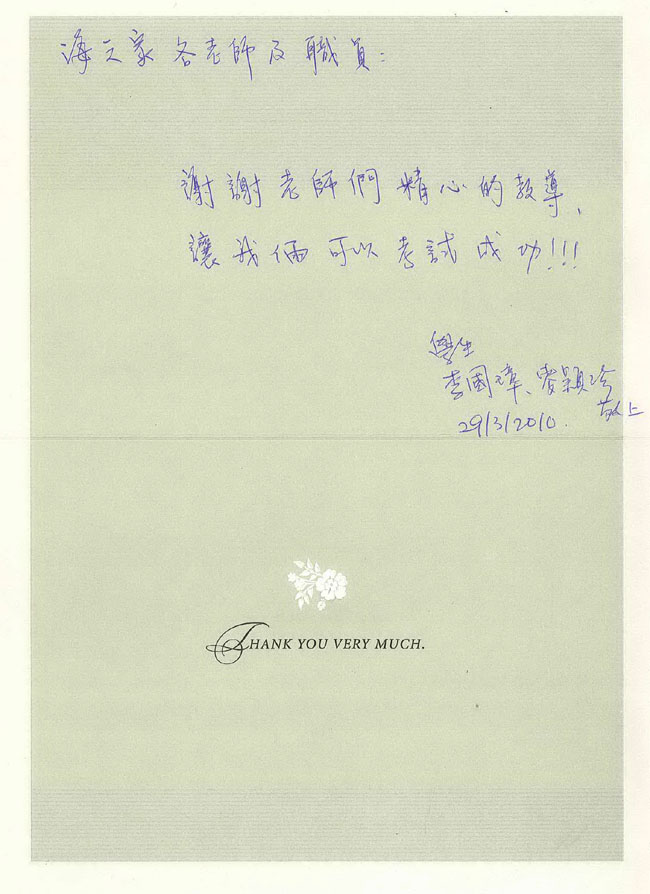 海之家各老師及職員:
謝謝老師們精心的教導,
讓我倆可以考試成功!!!
學生
李國璋、穎玲
敬上
29/3/2010.
THANK YOU VERY MUCH.